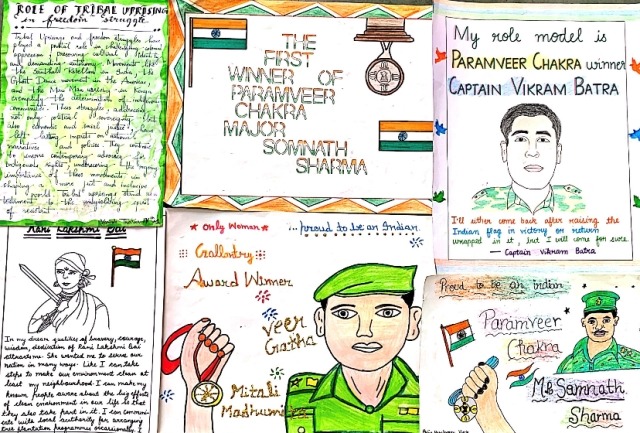 ROLE OF TRIBAL UPRISING
in freedom struggle
Tribal Uprisings and freedom struggles have
played a pivotal role in challenging colonial
oppression, preserving cultural identity
and demanding autonomy. Movements like
the Santhal Rebellion in India, the
Ghost Dance movement in the Americas
and the Mau Mau uprising in Kenya
exemplify the determination of
communities. These struggles addressed
not only political sovereignty but
also economic and social justice
left lasting impacts on national
narratives and policies. They continue
to contemporary advocacy
Indigenous rights, underscoring the
importance of these movements in
shaping a more just and inclusive
world. tribal uprisings stand as a
testament to the spirit
of
THE
FIRST
WINNER OF
PARAMVEER
CHAKRA
MAJOR
SOMNATH
SHARMA
My role model is
PARAMVEER CHAKRA winner
CAPTAIN VIKRAM BATRA
I'll either come back after raising the
Indian flag in victory or return
wrapped in it, but I will come for sure.
— Captain Vikram Batra
Rani Lakshmi Bai
In my dream qualities of bravery, courage,
wisdom, dedication of Rani Lakshmi Bai
attracts me. She wanted me to serve our
nation in many ways. Like I can take
steps to make our environment clean at
least my neighbourhood. I can make my
known people aware about the big effects
of clean environment in our life so that
they also take part in it. I can communi-
cate with local authority for arranging
tree plantation programmes occasionally
* Only Woman *
...proud to be an Indian
Gallantry
Award Winner
Veer
Cakha
Mitali
Madhumita
Proud to be an indian
Paramveer
Chakra
Mj Somnath
Sharma